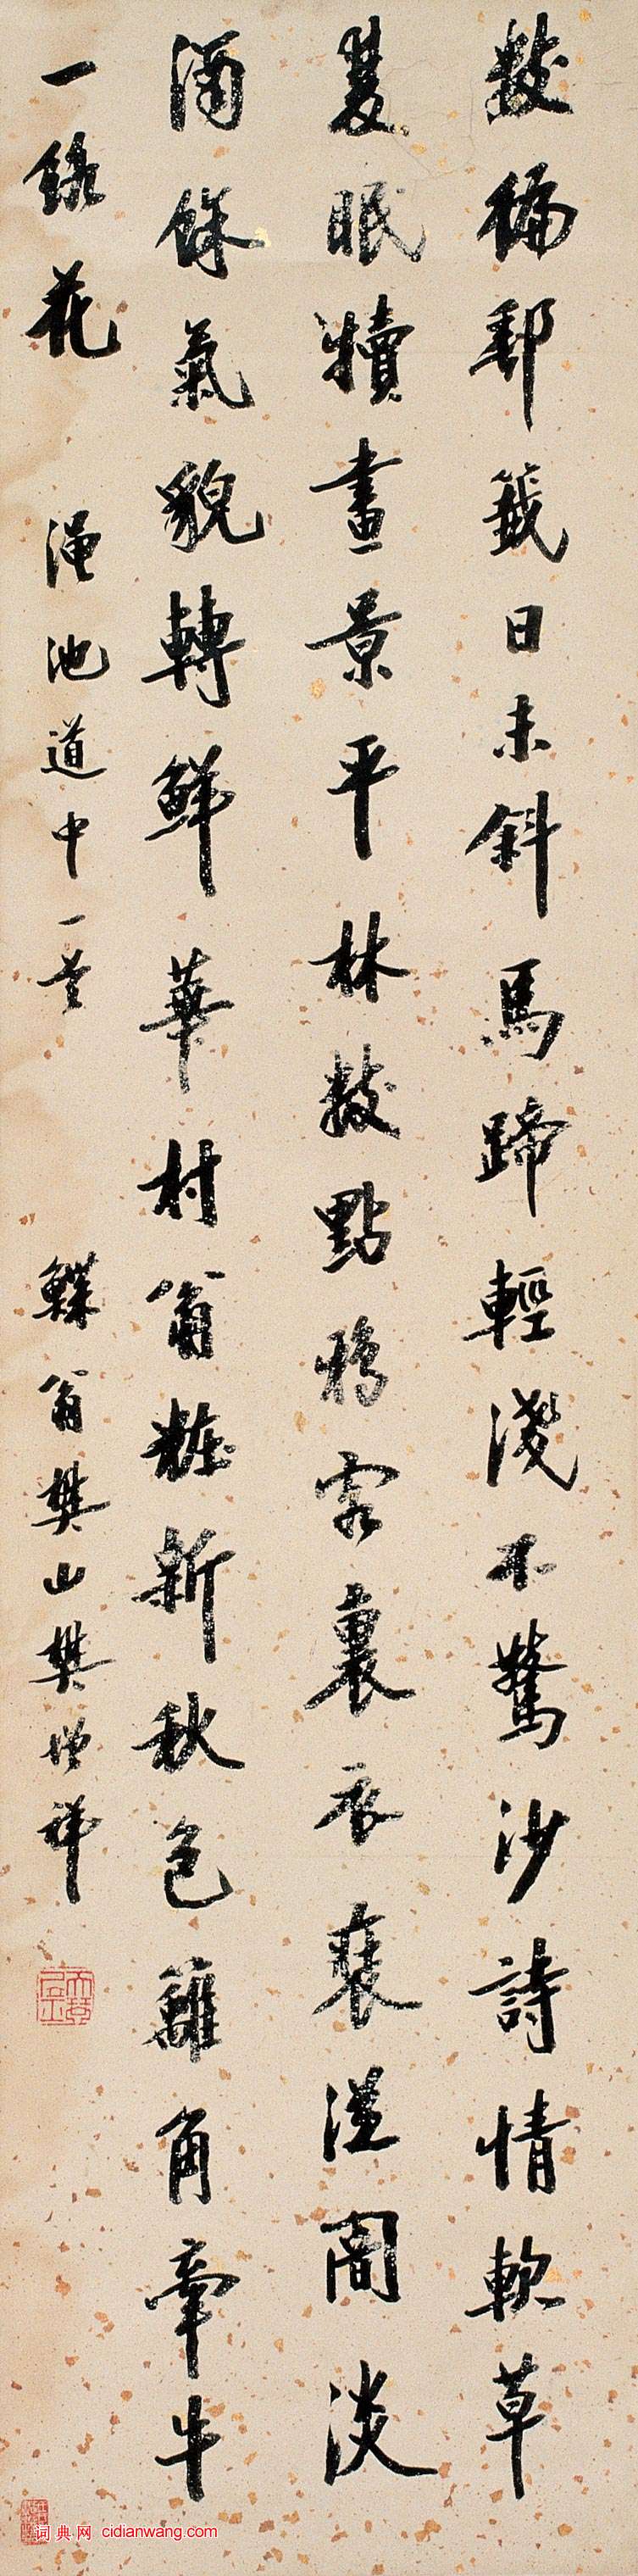 數徧郵籤日未斜馬蹄輕淺不驚沙詩情軟草
雙眠犢畫景平林數點鴉客裏衣裘從闇淡
酒餘氣貌轉鮮華村翁粧新秋色籬角牽牛
一絡花 澠池道中一首 鰈翁樊山樊增祥
词典网 cidianwang.com